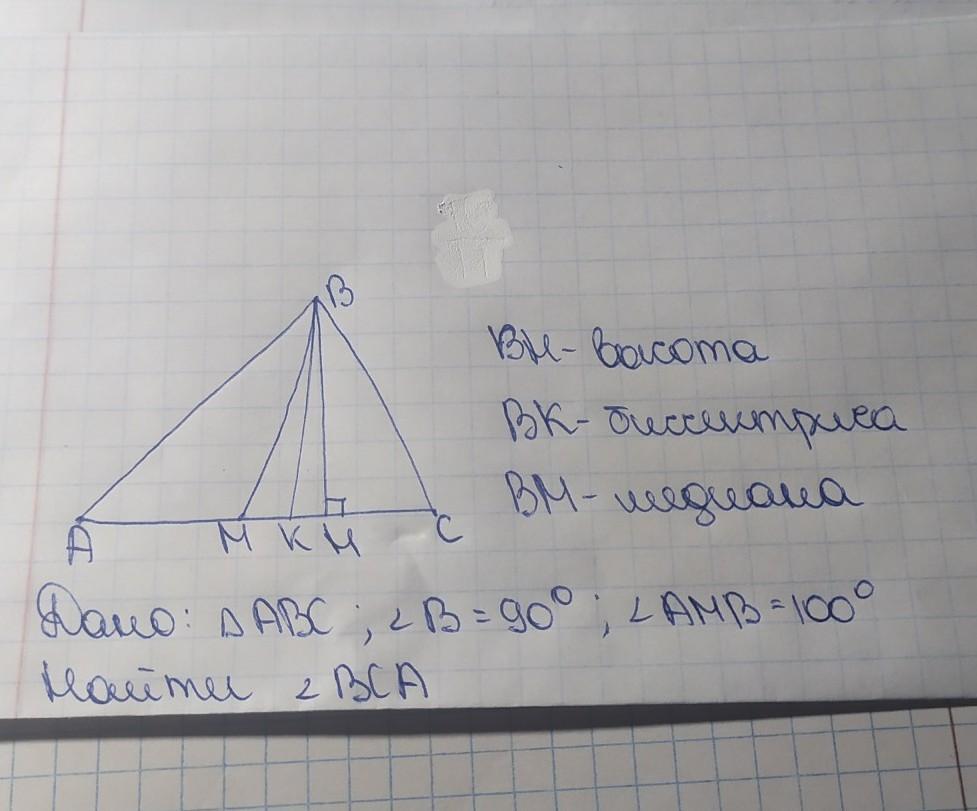 B
BH - высота
BK - биссектриса
BM - медиана
A M K H C
Дано: △ABC; ∠B = 90°; ∠AMB = 100°
Найти ∠BCA